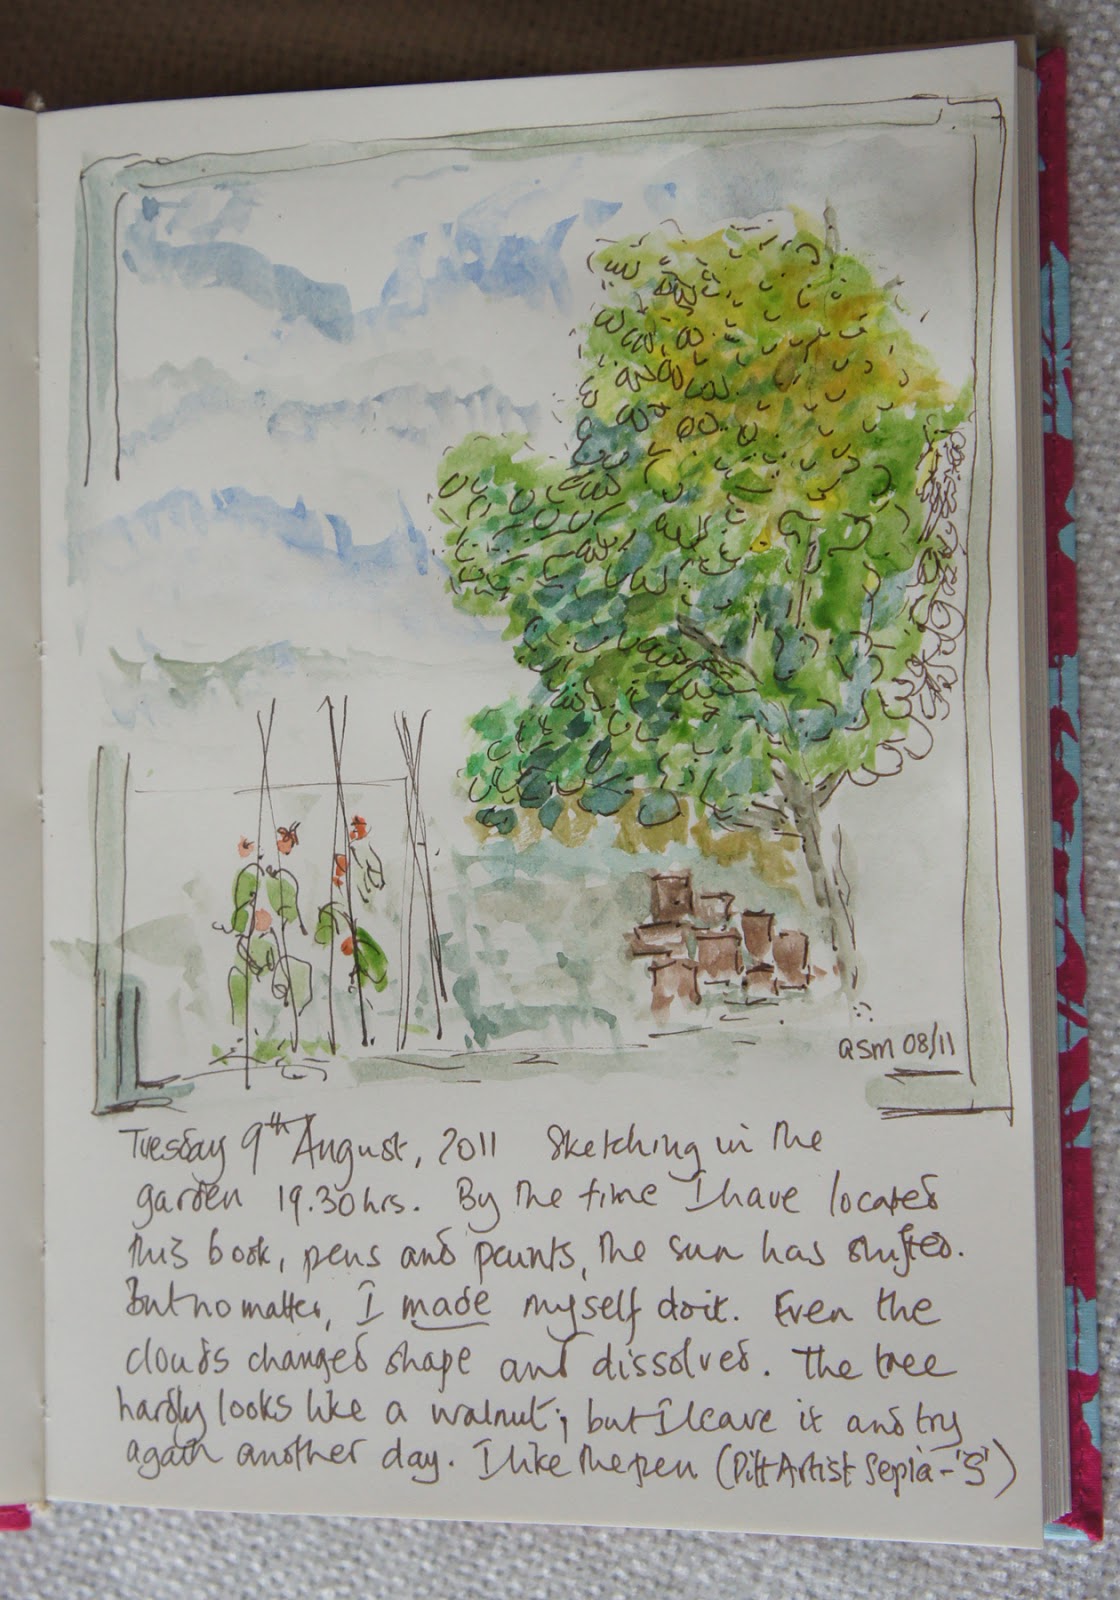 asm 08/11
Tuesday 9th August, 2011 Sketching in the
garden 19.30hrs. By the time I have located
this book, pens and paints, the sun has shifted.
But no matter, I made myself do it. Even the
clouds changed shape and dissolved. The tree
hardly looks like a walnut; but I leave it and try
again another day. I like the pen (Pitt Artist Sepia - 'S')